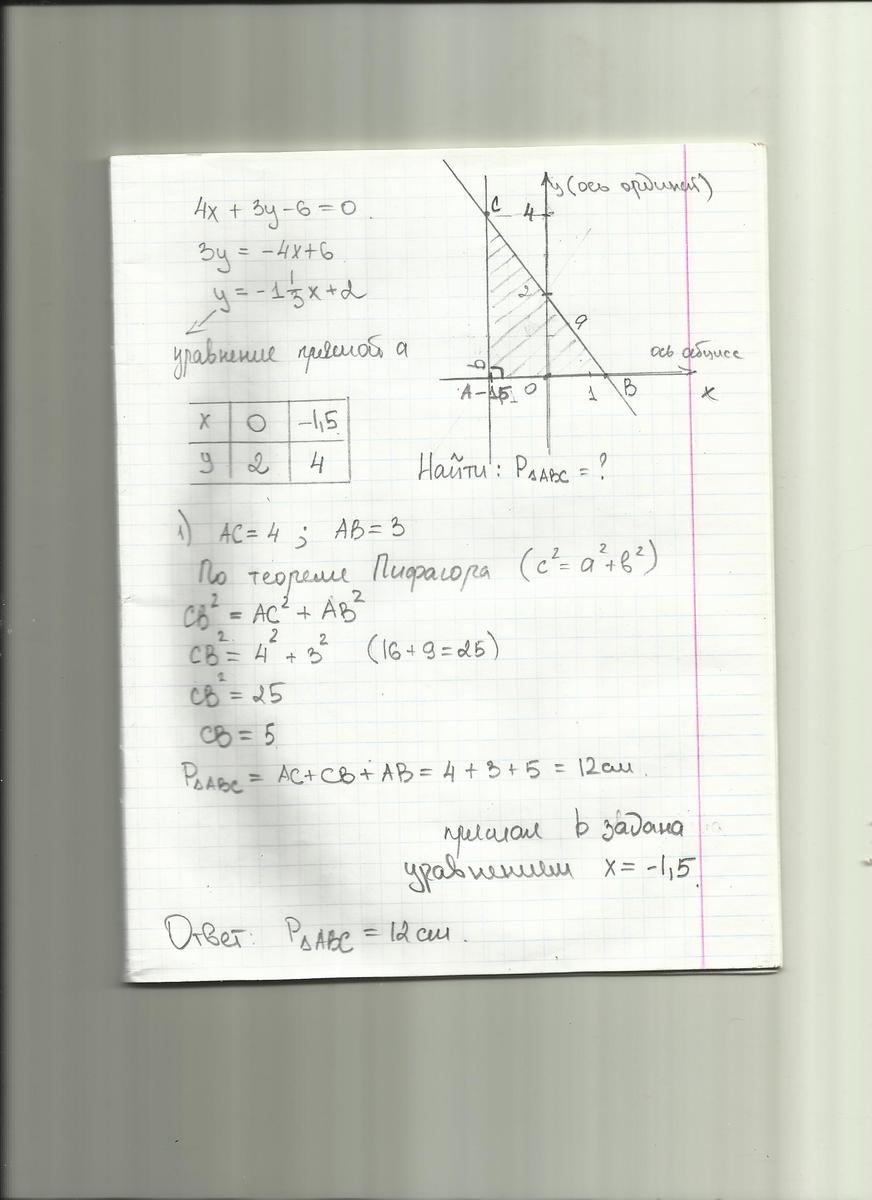 4x + 3y - 6 = 0
3y = -4x+6
y = -1 1/3 x + 2
уравнение прямой a
x 0 -1,5
y 2 4
y (ось ординат)
C 4
2
a
ось абцисс
b
A -1,5 0 1 B x
Найти: P△ABC = ?
1) AC = 4 ; AB = 3
По теореме Пифагора (c² = a² + b²)
CB² = AC² + AB²
CB² = 4² + 3² (16 + 9 = 25)
CB² = 25
CB = 5
P△ABC = AC + CB + AB = 4 + 3 + 5 = 12 см.
прямая b задана
уравнением x = -1,5
Ответ: P△ABC = 12 см.